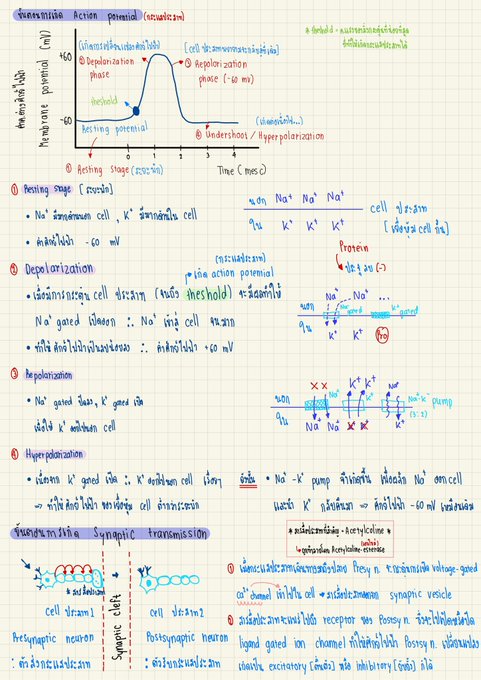 ขั้นตอนการเกิด Action potential (กระแสประสาท)
* theshold =
Membrane potential (mV)
+60
-60
② Depolarization phase
③ Repolarization phase (-60 mv)
theshold
Resting potential
④ Undershoot / Hyperpolarization
① Resting stage (ระยะพัก)
0 1 2 3 4
Time (mesc)
① Resting stage [ระยะพัก]
• Na⁺ มีมากด้านนอก cell , K⁺ มีมากด้านใน cell
• ค่าศักย์ไฟฟ้า -60 mV
นอก Na⁺ Na⁺ Na⁺
ใน K⁺ K⁺ K⁺
cell ประสาท
[เยื่อหุ้ม cell กั้น]
Protein
ประจุลบ (-)
② Depolarization
(กระแสประสาท)
เกิด action potential
• เมื่อมีการกระตุ้น cell ประสาท (จนถึง theshold) จะมีผลทำให้
Na⁺ gated เปิดออก ∴ Na⁺ เข้าสู่ cell จนมาก
• ทำให้ศักย์ไฟฟ้าเป็นลบน้อยลง ∴ ค่าศักย์ไฟฟ้า +60 mV
นอก Na⁺ Na⁺ ...
Na⁺ gated
K⁺ gated
ใน K⁺ K⁺ Pro
③ Repolarization
• Na⁺ gated ปิดลง, K⁺ gated เปิด
เพื่อให้ K⁺ ออกไปนอก cell
นอก
ใน
Na⁺ K⁺ K⁺ Na⁺
Na⁺-K⁺ pump
(3:2)
Na⁺ Na⁺ K⁺ K⁺
④ Hyperpolarization
• เนื่องจาก K⁺ gated เปิด ∴ K⁺ ออกไปนอก cell เรื่อยๆ
⇒ ทำให้ศักย์ไฟฟ้า ของเยื่อหุ้ม cell ต่ำกว่าระยะพัก
ดังนั้น • Na⁺-K⁺ pump จึงเกิดขึ้น เพื่อผลัก Na⁺ ออก cell
และนำ K⁺ กลับคืนมา ⇒ ศักย์ไฟฟ้า -60 mV เหมือนเดิม
ขั้นตอนการเกิด Synaptic transmission
* สารสื่อประสาทที่สำคัญ - Acetylcoline *
Acetylcoline-esterase
สารสื่อประสาท
cell ประสาท 1
Presynaptic neuron
: ตัวส่งกระแสประสาท
Synaptic cleft
cell ประสาท 2
Postsynaptic neuron
: ตัวรับกระแสประสาท
① เมื่อกระแสประสาทเดินทางมาถึงปลาย Presy n. จะกระตุ้นการเปิด voltage-gated
Ca²⁺ channel เข้าไปใน cell → สารสื่อประสาทออกจาก synaptic vesicle
② สารสื่อประสาทจะแพร่ไปยัง receptor ของ Postsy n. ซึ่งจะไปเปิดหรือปิด
ligand gated ion channel ทำให้ศักย์ไฟฟ้า Postsy n. เปลี่ยนแปลง
เกิดเป็น excitatory [กระตุ้น] หรือ inhibitory [ยับยั้ง] ก็ได้